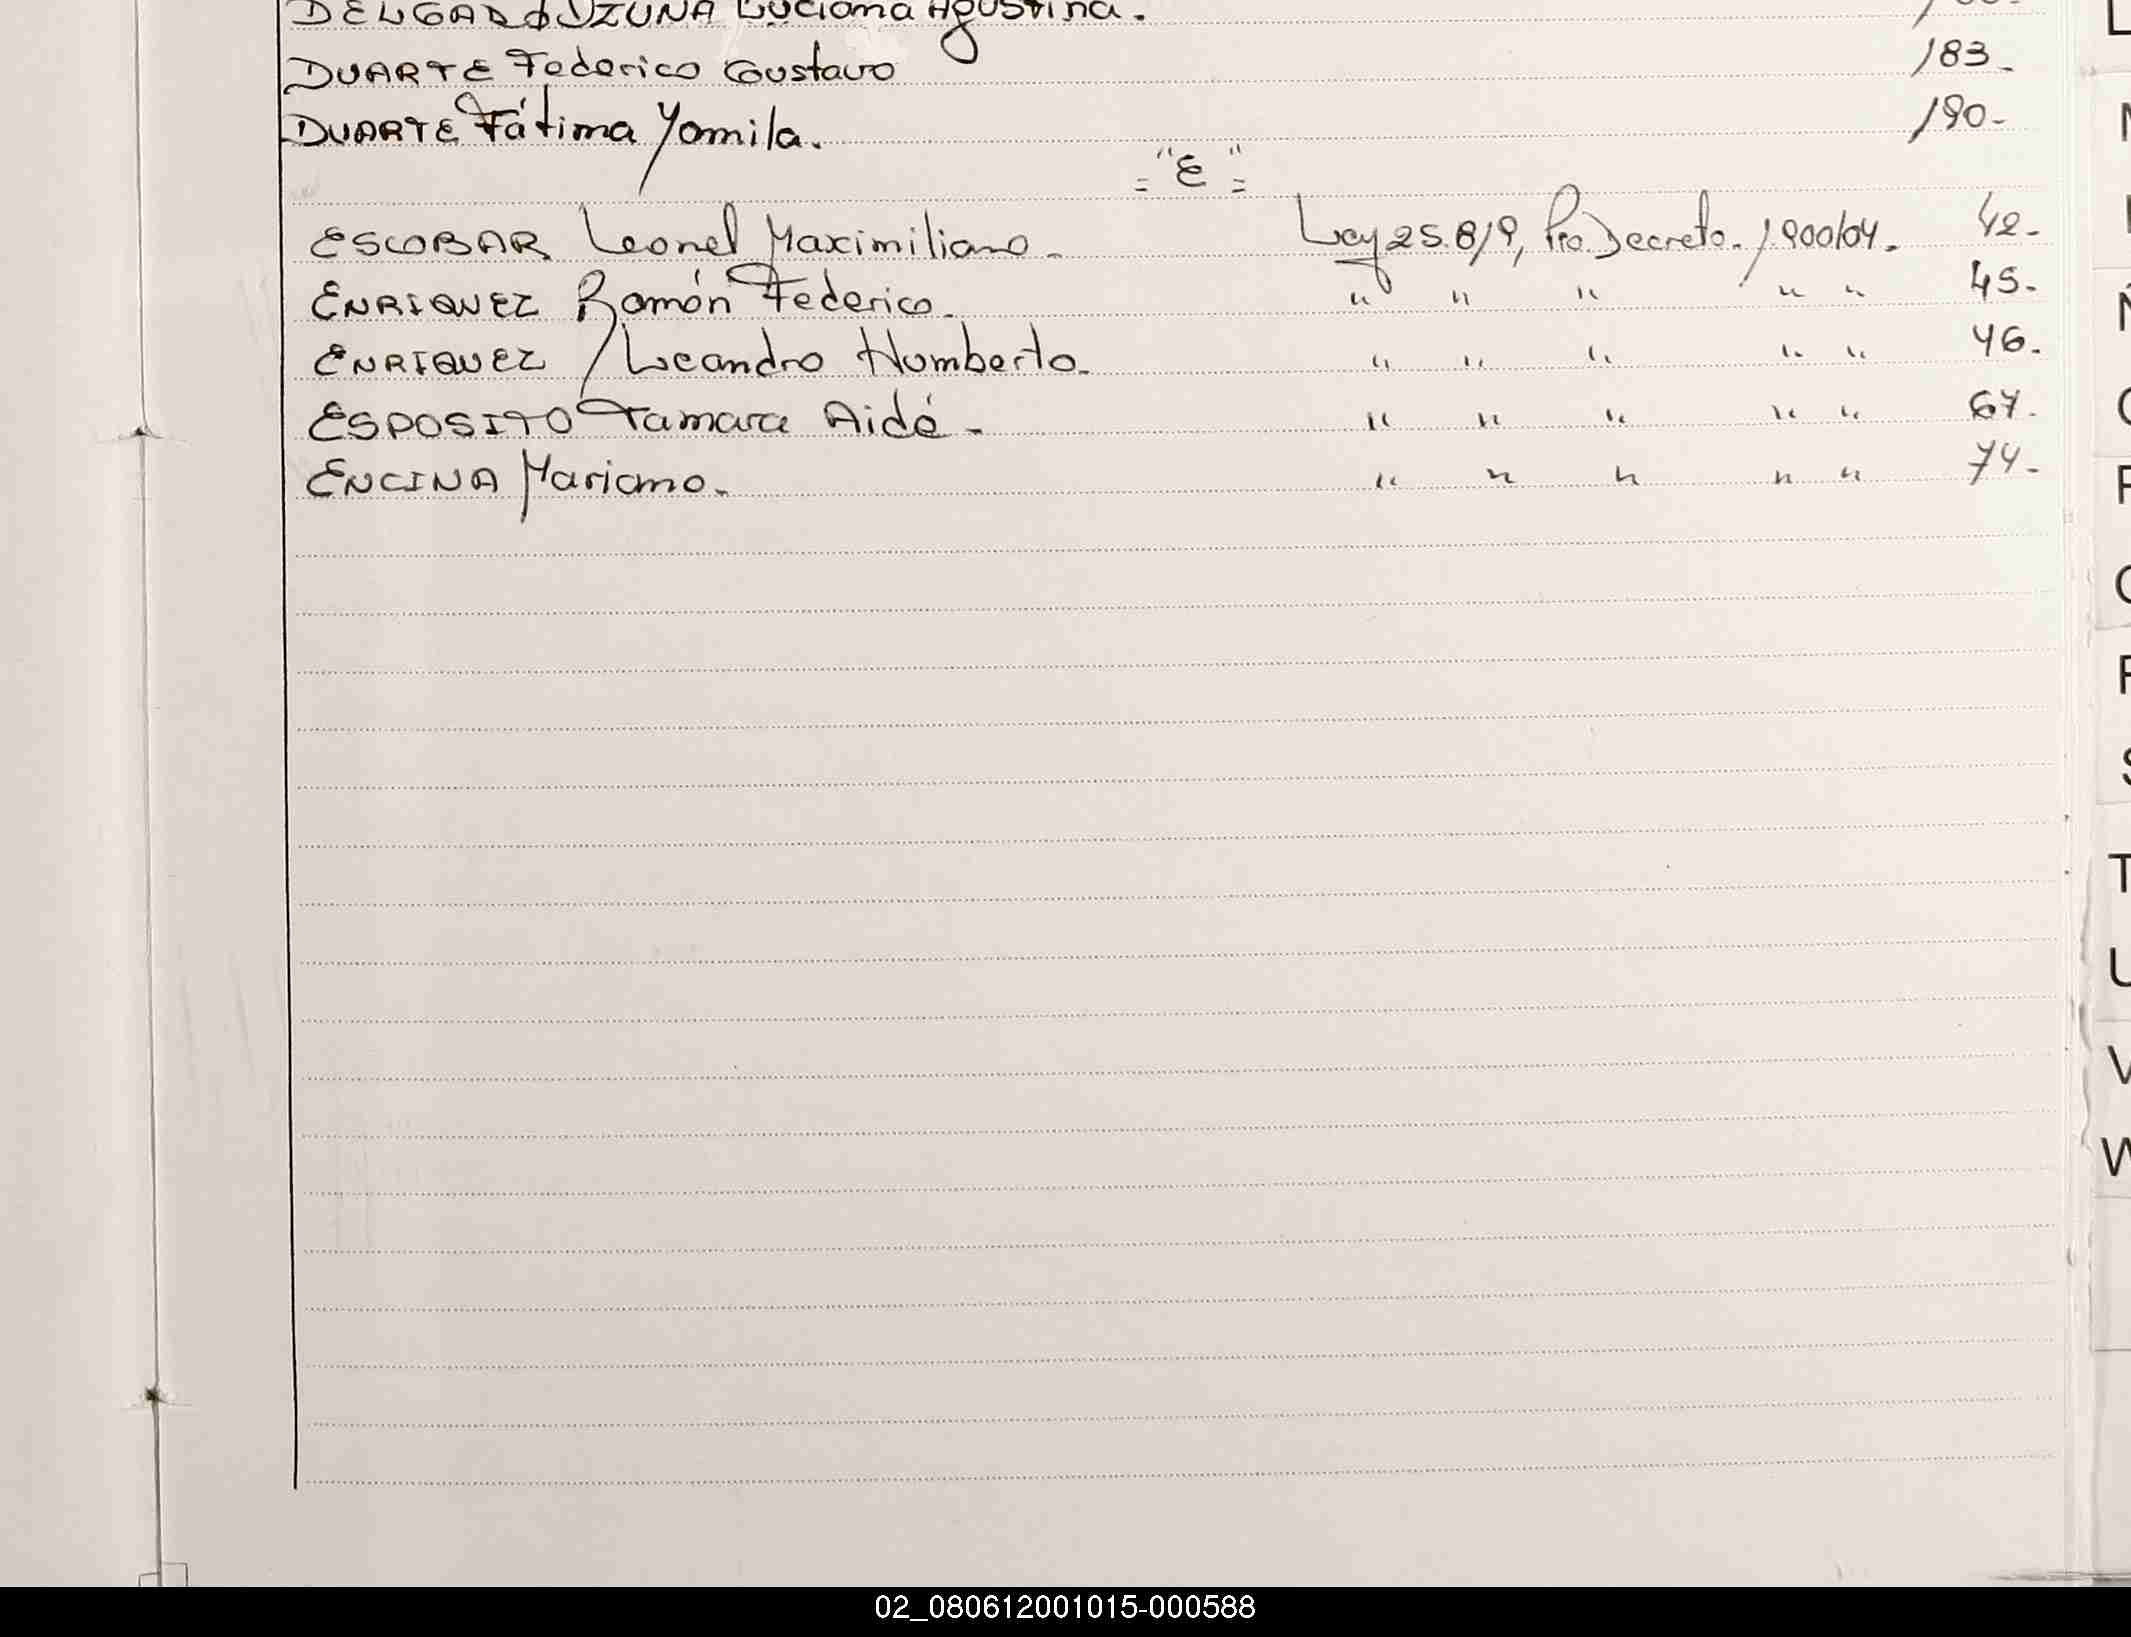 DELGADO OZUNA Luciana Agustina.
DUARTE Federico Gustavo 183-
DUARTE Fátima Yamila. 190-
= "E" =
ESCOBAR Leonel Maximiliano. Ley 25.819, Pro. Decreto. 1900/04. 42-
ENRIQUEZ Ramón Federico. " " " " " 45-
ENRIQUEZ Leandro Humberto. " " " " " 46.
ESPOSITO Tamara Aidé - " " " " " 67-
ENCINA Mariano. " " " " " 74-
T
U
V
W
02_080612001015-000588